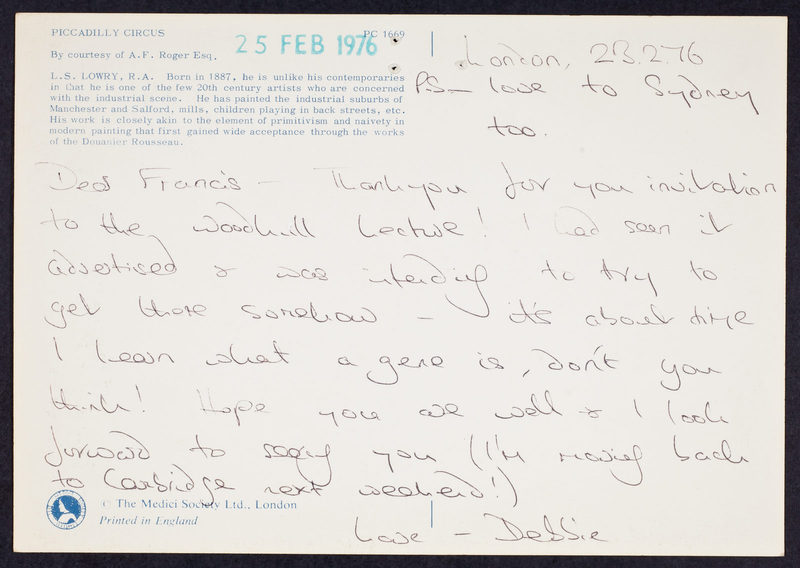 PICCADILLY CIRCUS
PC 1669
By courtesy of A.F. Roger Esq.
25 FEB 1976
L.S. LOWRY, R.A. Born in 1887, he is unlike his contemporaries
in that he is one of the few 20th century artists who are concerned
with the industrial scene. He has painted the industrial suburbs of
Manchester and Salford, mills, children playing in back streets, etc.
His work is closely akin to the element of primitivism and naivety in
modern painting that first gained wide acceptance through the works
of the Douanier Rousseau.
London, 23.2.76
PS — love to Sydney
too.
Dear Francis — Thank you for you invitation
to the Woodhull Lecture! I had seen it
advertised & was intending to try to
get there somehow — it's about time
I learn what a gene is, don't you
think! Hope you are well & I look
forward to seeing you (I'm moving back
to Cambridge next weekend!)
© The Medici Society Ltd., London
Printed in England
Love — Debbie